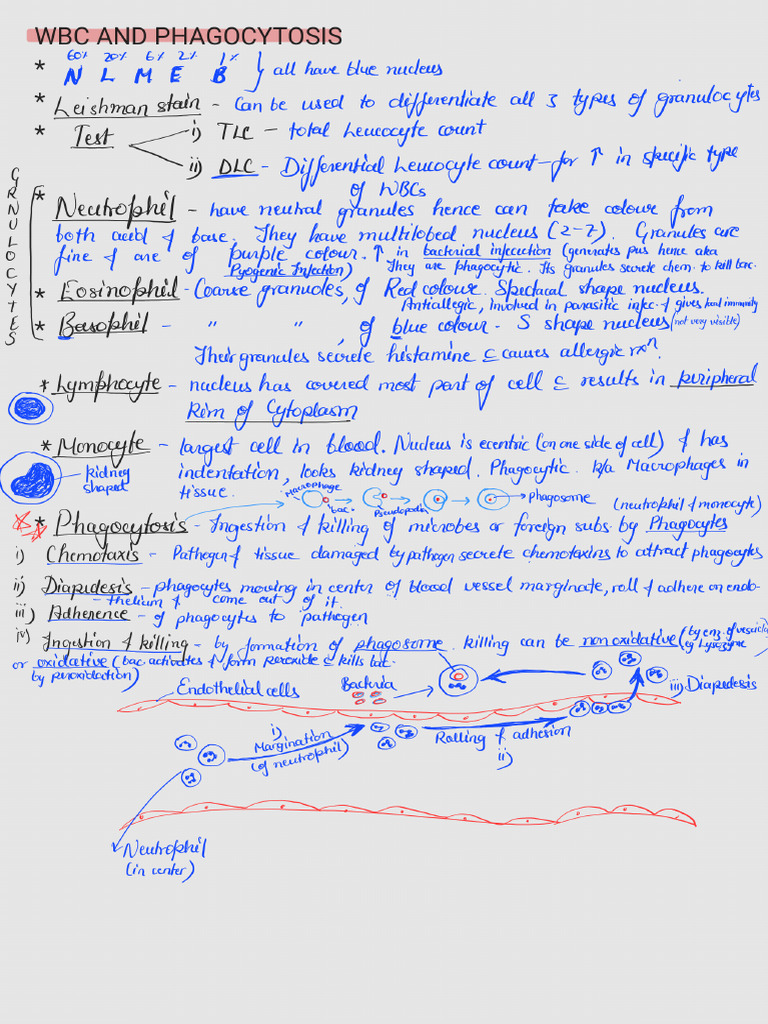 WBC AND PHAGOCYTOSIS
60% 20% 6% 2% 1%
* N L M E B } all have blue nucleus
* Leishman stain - Can be used to differentiate all 3 types of granulocytes
* Test i) TLC - total Leucocyte count
ii) DLC - Differential Leucocyte count - for ↑ in specific type
of WBCs
GRNULOCYTES
* Neutrophil - have neutral granules hence can take colour from
both acid & base. They have multilobed nucleus (2-7). Granules are
fine & are of purple colour. ↑ in bacterial infecection (generates pus hence aka
Pyogenic Infection) They are phagocytic. Its granules secrete chem. to kill bac.
* Eosinophil - Coarse granules, of Red colour. Spectacal shape nucleus.
Antiallegic, involved in parasitic infec. & gives local immunity
* Basophil - " " , of blue colour - S shape nucleus (not very visible)
Their granules secrete histamine c causes allergic rxn.
* Lymphocyte - nucleus has covered most part of cell c results in peripheral
Rim of Cytoplasm
* Monocyte - largest cell in blood. Nucleus is ecentric (on one side of cell) & has
kidney shaped
indentation, looks kidney shaped. Phagocytic. k/a Macrophages in
tissue.
Macrophage bac. Pseudopodia Phagosome
(neutrophil & monocyte)
* Phagocytosis - Ingestion & killing of microbes or foreign subs. by Phagocytes
i) Chemotaxis - Pathogen & tissue damaged by pathogen secrete chemotaxins to attract phagocytes
ii) Diapedesis - phagocytes moving in center of blood vessel marginate, roll & adhere on endo-
- thelium & come out of it.
iii) Adherence - of phagocytes to pathogen
iv) Ingestion & killing - by formation of phagosome. killing can be nonoxidative (by enz. of vesicles eg Lysozyme)
or oxidative (bac. activates & form peroxide c kills bac.
by peroxidation)
Endothelial cells
Bacteria
iii) Diapedesis
i)
Margination
(of neutrophil)
Rolling & adhesion
ii)
Neutrophil
(in center)